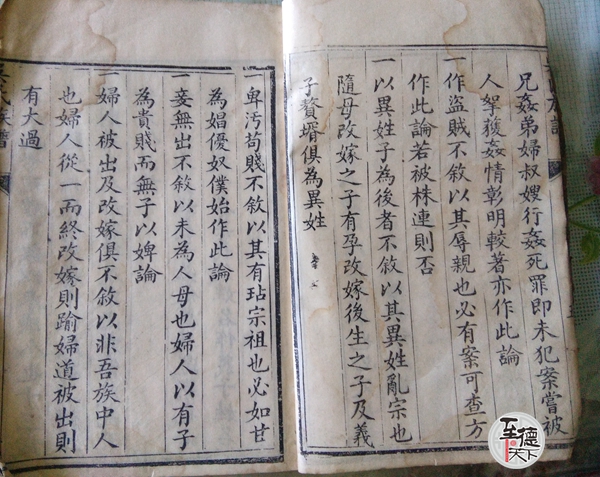 兄姦弟婦叔嫂行姦死罪即未犯案嘗被
人拏獲姦情彰明較著亦作此論
一作盜賊不敘以其辱親也必有案可查方
作此論若被株連則否
一以異姓子為後者不敘以其異姓亂宗也
隨母改嫁之子有孕改嫁後生之子及義
子贅壻俱為異姓
一卑汚苟賤不敘以其有玷宗祖也必如甘
為娼優奴僕始作此論
一妾無出不敘以未為人母也婦人以有子
為貴賤而無子以婢論
一婦人被出及改嫁俱不敘以非吾族中人
也婦人從一而終改嫁則踰婦道被出則
有大過
氏族譜
至德天下